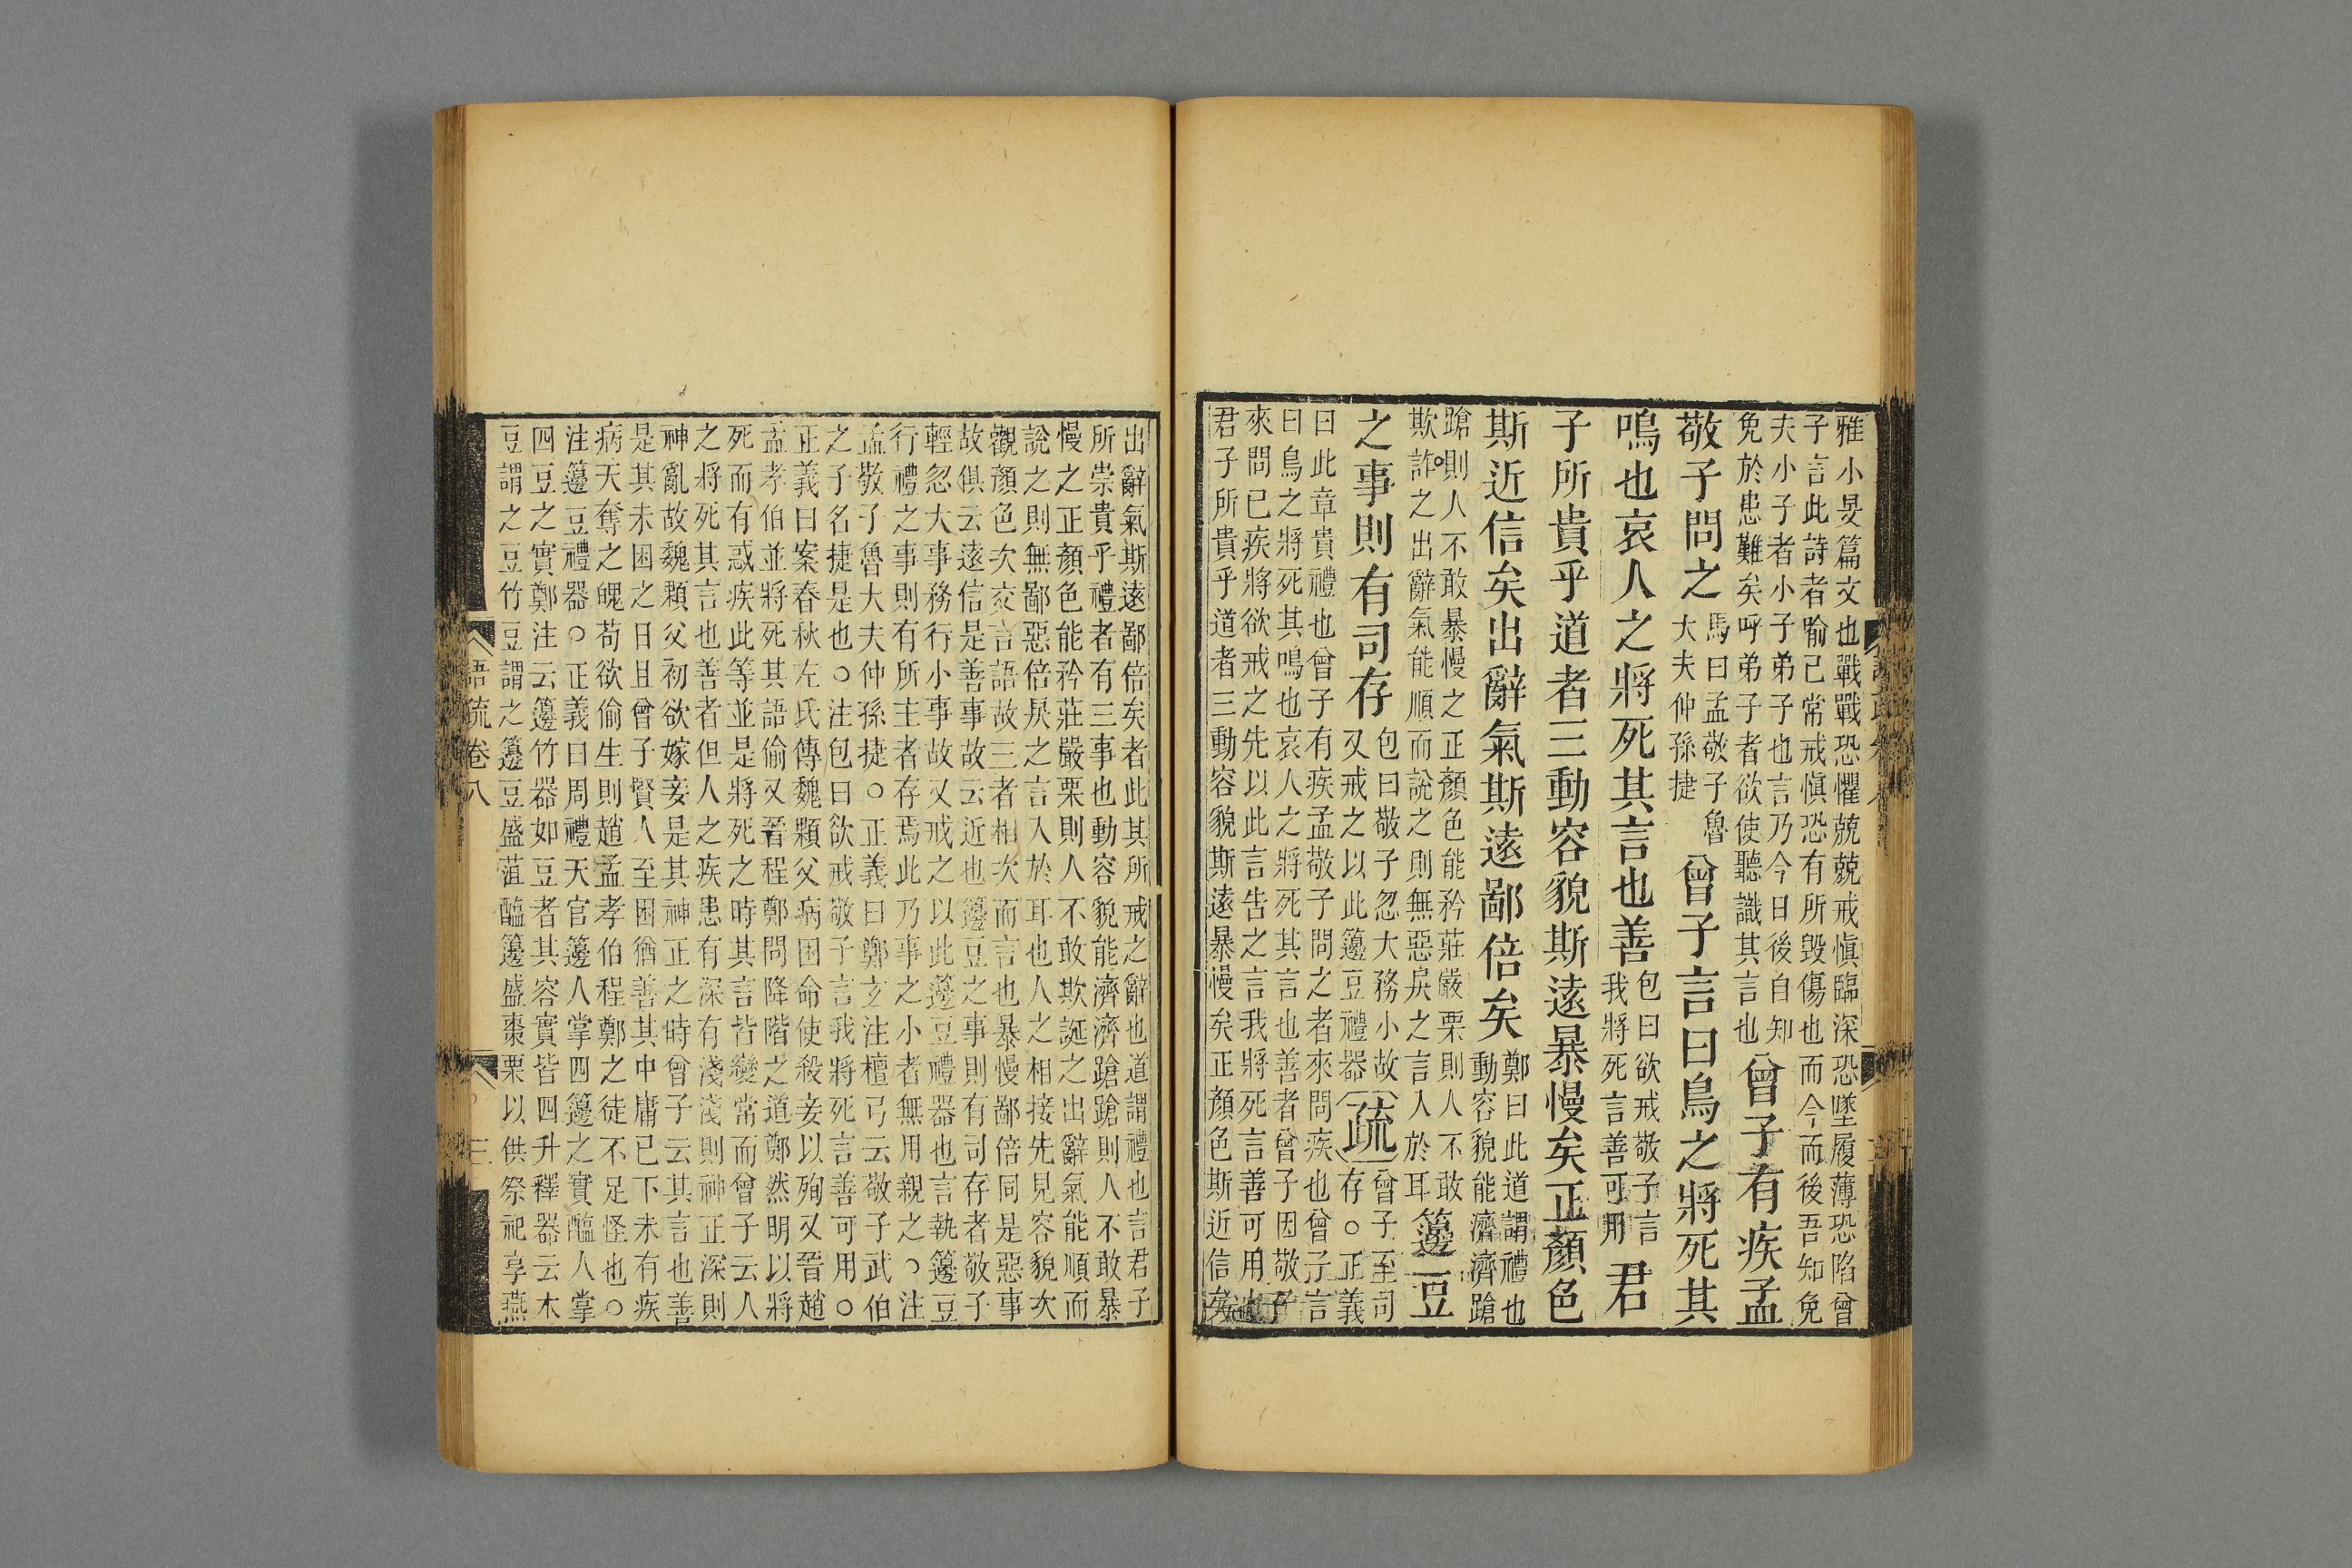 雅小旻篇文也戰戰恐懼兢兢戒愼臨深恐墜履薄恐陷曾
子言此詩者喻己常戒愼恐有所毀傷也而今而後吾知免
夫小子者小子弟子也言乃今日後自知
免於患難矣呼弟子者欲使聽識其言也
曾子有疾孟
敬子問之
馬曰孟敬子魯
大夫仲孫捷
曾子言曰鳥之將死其
鳴也哀人之將死其言也善
包曰欲戒敬子言
我將死言善可用
君
子所貴乎道者三動容貌斯遠暴慢矣正顏色
斯近信矣出辭氣斯遠鄙倍矣
鄭曰此道謂禮也
動容貌能濟濟蹌
蹌則人不敢暴慢之正顏色能矜莊嚴栗則人不敢
欺詐之出辭氣能順而說之則無惡戾之言入於耳
籩豆
之事則有司存
包曰敬子忽大務小故
又戒之以此籩豆禮器
疏
曾子至司
存○正義
曰此章貴禮也曾子有疾孟敬子問之者來問疾也曾子言
曰鳥之將死其鳴也哀人之將死其言也善者曾子因敬子
來問己疾將欲戒之先以此言告之言我將死言善可用也
君子所貴乎道者三動容貌斯遠暴慢矣正顏色斯近信矣
出辭氣斯遠鄙倍矣者此其所戒之辭也道謂禮也言君子
所崇貴乎禮者有三事也動容貌能濟濟蹌蹌則人不敢暴
慢之正顏色能矜莊嚴栗則人不敢欺誕之出辭氣能順而
說之則無鄙惡倍戾之言入於耳也人之相接先見容貌次
觀顏色次交言語故三者相次而言也暴慢鄙倍同是惡事
故俱云遠信是善事故云近也籩豆之事則有司存者敬子
輕忽大事務行小事故又戒之以此籩豆禮器也言執籩豆
行禮之事則有所主者存焉此乃事之小者無用親之○注
孟敬子魯大夫仲孫捷○正義曰鄭玄注檀弓云敬子武伯
之子名捷是也○注包曰欲戒敬子言我將死言善可用○
正義曰案春秋左氏傳魏顆父病困命使殺妾以殉又晉趙
孟孝伯並將死其語偷又晉程鄭問降階之道鄭然明以將
死而有惑疾此等並是將死之時其言皆變常而曾子云人
之將死其言也善者但人之疾患有深有淺淺則神正深則
神亂故魏顆父初欲嫁妾是其神正之時曾子云其言也善
是其未困之日且曾子賢人至困猶善其中庸已下未有疾
病天奪之魄苟欲偷生則趙孟孝伯程鄭之徒不足怪也○
注籩豆禮器○正義曰周禮天官籩人掌四籩之實醢人掌
四豆之實鄭注云籩竹器如豆者其容實皆四升釋器云木
豆謂之豆竹豆謂之籩豆盛菹醢籩盛棗栗以供祭祀享燕
語疏卷八
三